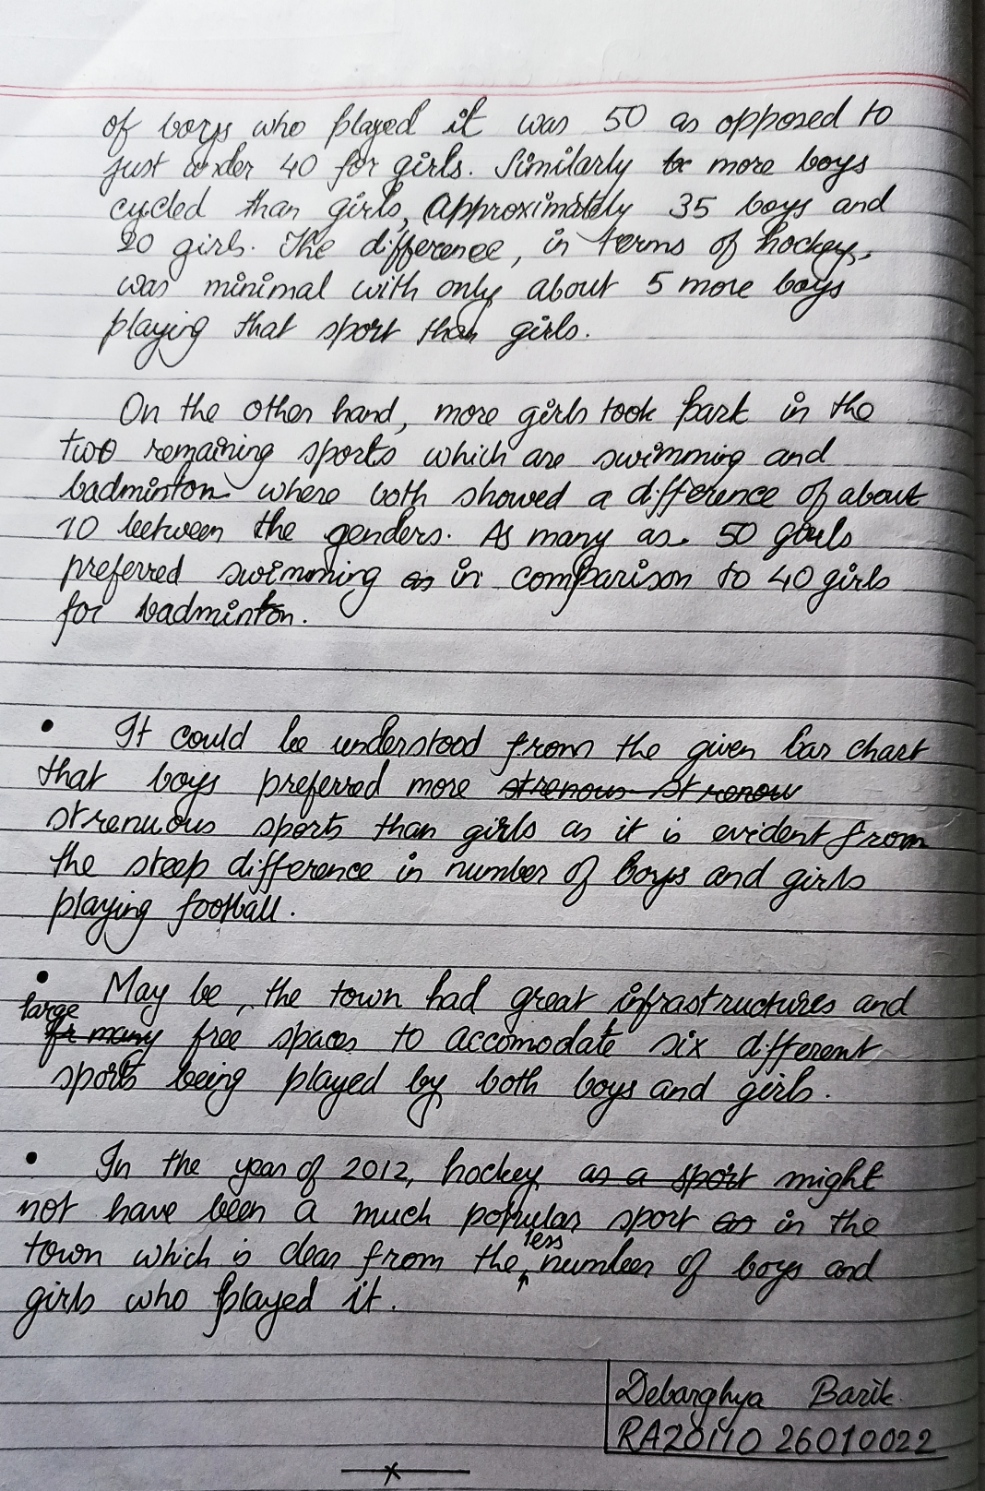 of boys who played it was 50 as opposed to
just under 40 for girls. Similarly more boys
cycled than girls, approximately 35 boys and
20 girls. The difference, in terms of hockey,
was minimal with only about 5 more boys
playing that sport than girls.
On the other hand, more girls took part in the
two remaining sports which are swimming and
badminton where both showed a difference of about
10 between the genders. As many as 50 girls
preferred swimming in comparison to 40 girls
for badminton.
• It could be understood from the given bar chart
that boys preferred more strenous strenou
strenuous sports than girls as it is evident from
the steep difference in number of boys and girls
playing football.
• May be, the town had great infrastructures and
large many free spaces to accomodate six different
sports being played by both boys and girls.
• In the year of 2012, hockey as a sport might
not have been a much popular sport in the
town which is clear from the less number of boys and
girls who played it.
Debarghya Barik
RA20110 26010022